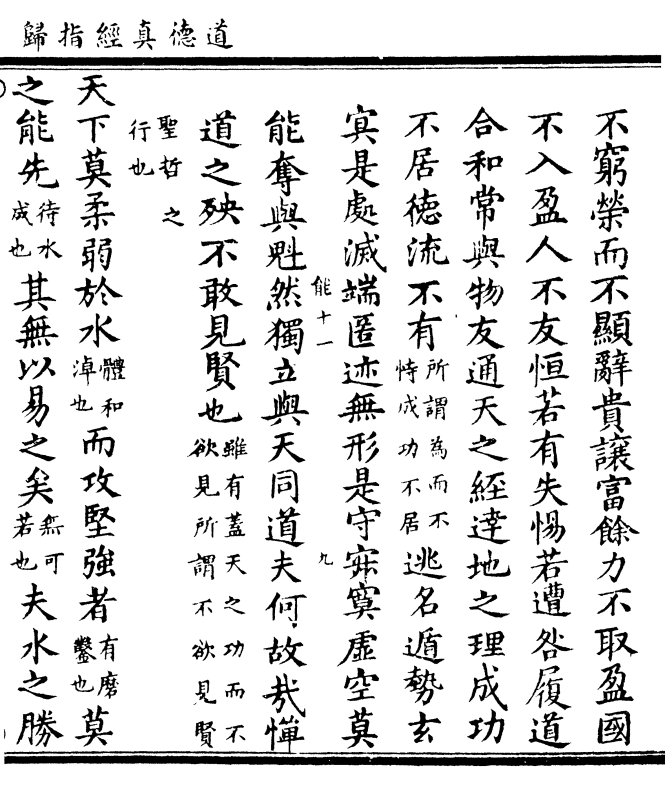 道德真經指歸
不窮榮而不顯辭貴讓富餘力不取盈國
不入盈人不友恒若有失惕若遭咎履道
合和常與物友通天之經達地之理成功
不居德流不有所謂為而不恃成功不居逃名遁勢玄
寞是處滅端匿迹無形是守寂寞虛空莫
能奪與魁然獨立與天同道夫何故哉憚
能十一
九
道之殃不敢見賢也雖有蓋天之功而不欲見所謂不欲見賢
聖哲之行也
天下莫柔弱於水體和淖也而攻堅強者有磨鑿也莫
之能先待水成也其無以易之矣無可若也夫水之勝